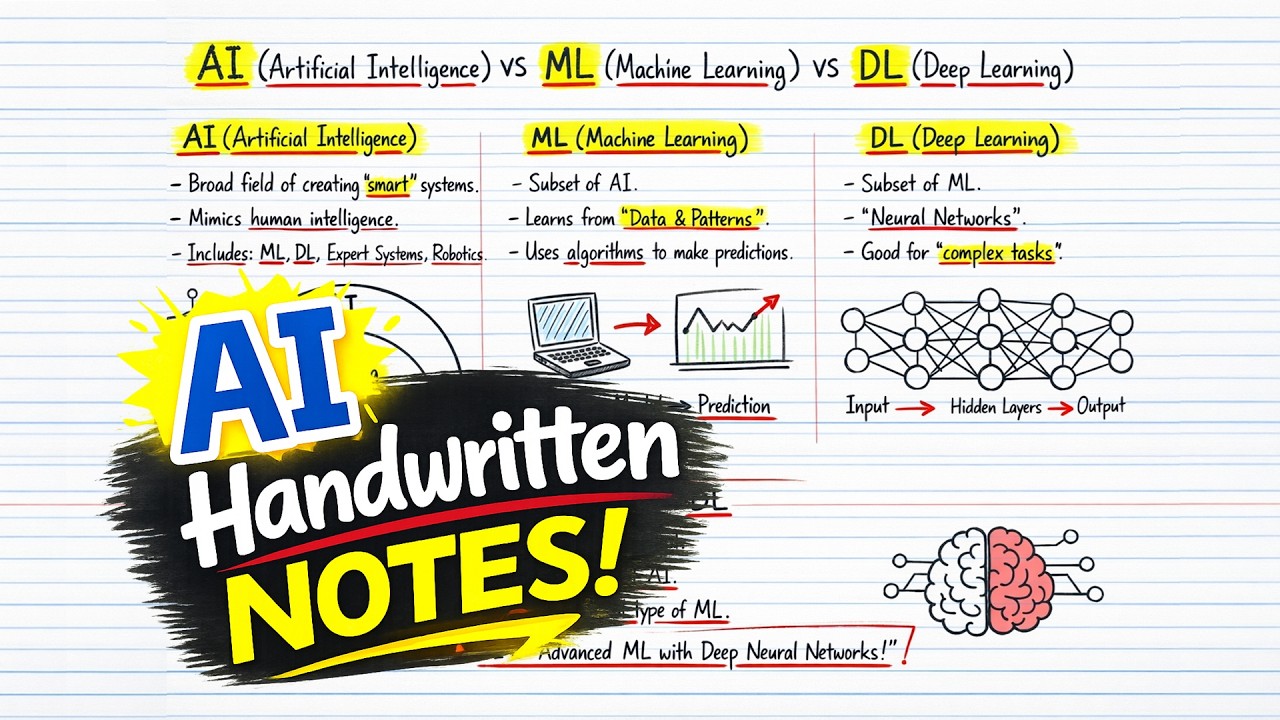 AI (Artificial Intelligence) vs ML (Machine Learning) vs DL (Deep Learning)
AI (Artificial Intelligence)
- Broad field of creating "smart" systems.
- Mimics human intelligence.
- Includes: ML, DL, Expert Systems, Robotics.
ML (Machine Learning)
- Subset of AI.
- Learns from "Data & Patterns".
- Uses algorithms to make predictions.
→ Prediction
DL (Deep Learning)
- Subset of ML.
- "Neural Networks".
- Good for "complex tasks".
Input → Hidden Layers → Output
AI
Handwritten
NOTES!
DL
AI.
type of ML.
Advanced ML with Deep Neural Networks!"